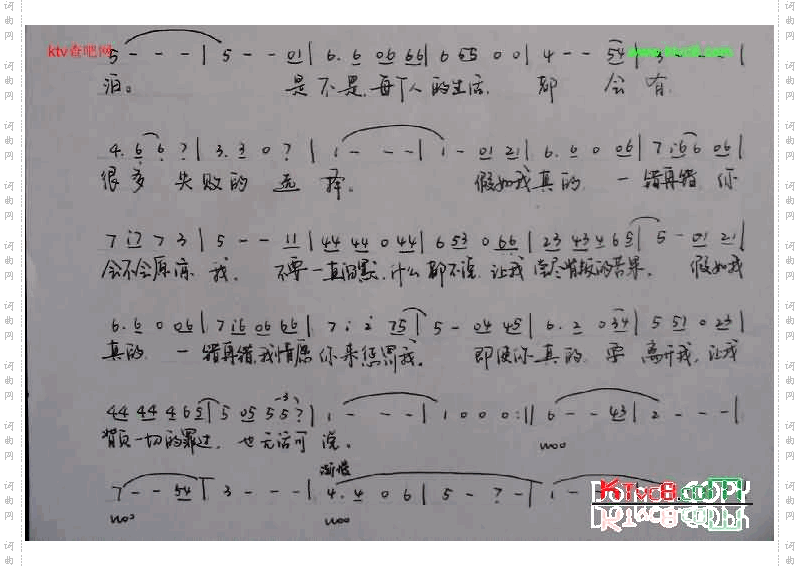 ktv查吧网
www.ktvc8.com
5 - - - | 5 - - 01 | 6. 6 06 66 | 6 65 0 0 | 4 - - 54 | 3 - - - |
泪。 是不是,每个人的生活, 都 会 有
4. 6 6 7 | 3. 3 0 7 | 1 - - - | 1 - 01 21 | 6. 6 0 06 | 7 16 6 06 |
很多 失败的 选 择。 假如我真的 一错再错 你
7 17 7 3 | 5 - - 11 | 44 44 0 44 | 6 53 0 66 | 23 43 4 65 | 5 - 01 21 |
会不会原谅 我。 不要一直沉默,什么都不说,让我尝尽背叛的苦果。 假如我
6. 6 0 06 | 7 16 06 66 | 7 1 2 75 | 5 - 04 45 | 6. 2 0 34 | 5 51 0 23 |
真的 一错再错,我情愿你来惩罚我。 即使你真的 要 离开我,让我
44 44 4 65 | 5 05 55 7 | 1 - - - | 1 0 0 0 :|| 6 - - 43 | 2 - - - |
背负一切的罪过, 也无话可 说。
渐慢
woo
7 - - 54 | 3 - - - | 4. 4 0 6 | 5 - 7 - | 1 -
woo woo
KTvc8.com
词曲网